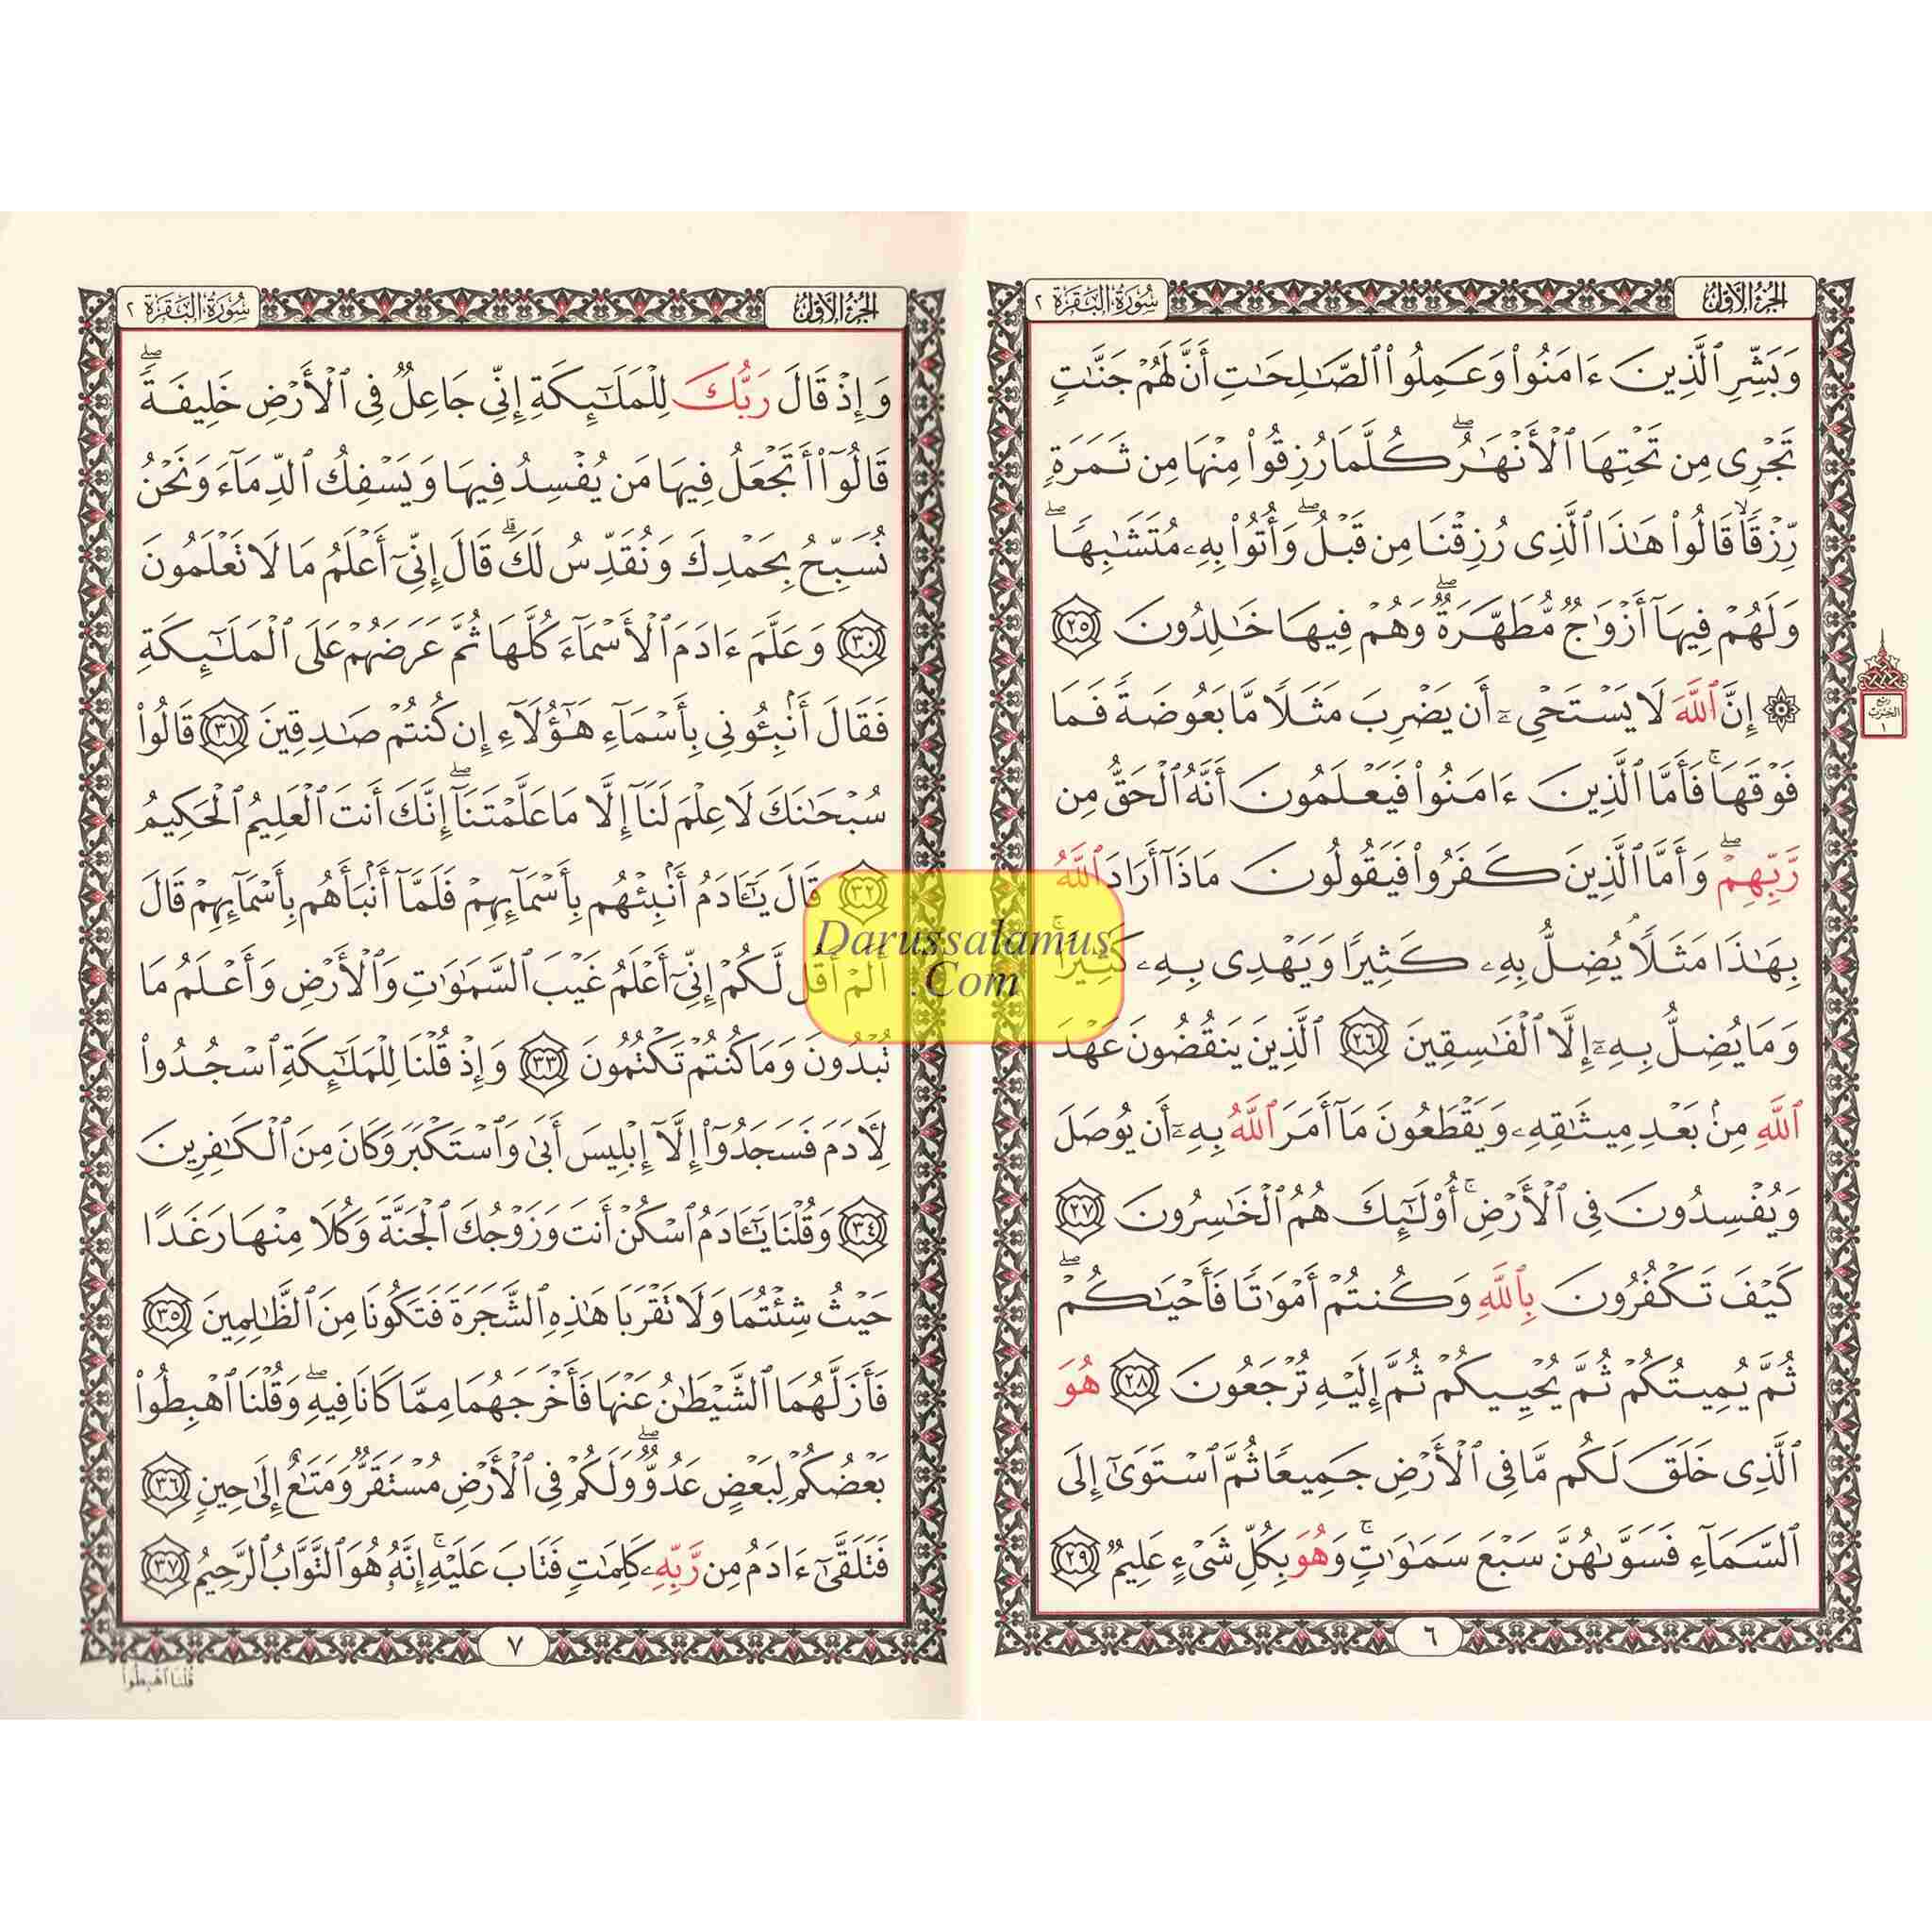 الجزء الأول
سورة البقرة ٢
وَبَشِّرِ ٱلَّذِينَ ءَامَنُوا۟ وَعَمِلُوا۟ ٱلصَّـٰلِحَـٰتِ أَنَّ لَهُمْ جَنَّـٰتٍ
تَجْرِى مِن تَحْتِهَا ٱلْأَنْهَـٰرُ ۖ كُلَّمَا رُزِقُوا۟ مِنْهَا مِن ثَمَرَةٍ
رِّزْقًا ۙ قَالُوا۟ هَـٰذَا ٱلَّذِى رُزِقْنَا مِن قَبْلُ ۖ وَأُتُوا۟ بِهِۦ مُتَشَـٰبِهًا ۖ
وَلَهُمْ فِيهَآ أَزْوَٰجٌ مُّطَهَّرَةٌ ۖ وَهُمْ فِيهَا خَـٰلِدُونَ ٢٥
۞ إِنَّ ٱللَّهَ لَا يَسْتَحْىِۦٓ أَن يَضْرِبَ مَثَلًا مَّا بَعُوضَةً فَمَا
فَوْقَهَا ۚ فَأَمَّا ٱلَّذِينَ ءَامَنُوا۟ فَيَعْلَمُونَ أَنَّهُ ٱلْحَقُّ مِن
رَّبِّهِمْ ۖ وَأَمَّا ٱلَّذِينَ كَفَرُوا۟ فَيَقُولُونَ مَاذَآ أَرَادَ ٱللَّهُ
بِهَـٰذَا مَثَلًا ۘ يُضِلُّ بِهِۦ كَثِيرًا وَيَهْدِى بِهِۦ كَثِيرًا ۚ
وَمَا يُضِلُّ بِهِۦٓ إِلَّا ٱلْفَـٰسِقِينَ ٢٦ ٱلَّذِينَ يَنقُضُونَ عَهْدَ
ٱللَّهِ مِنۢ بَعْدِ مِيثَـٰقِهِۦ وَيَقْطَعُونَ مَآ أَمَرَ ٱللَّهُ بِهِۦٓ أَن يُوصَلَ
وَيُفْسِدُونَ فِى ٱلْأَرْضِ ۚ أُو۟لَـٰٓئِكَ هُمُ ٱلْخَـٰسِرُونَ ٢٧
كَيْفَ تَكْفُرُونَ بِٱللَّهِ وَكُنتُمْ أَمْوَٰتًا فَأَحْيَـٰكُمْ ۖ
ثُمَّ يُمِيتُكُمْ ثُمَّ يُحْيِيكُمْ ثُمَّ إِلَيْهِ تُرْجَعُونَ ٢٨ هُوَ
ٱلَّذِى خَلَقَ لَكُم مَّا فِى ٱلْأَرْضِ جَمِيعًا ثُمَّ ٱسْتَوَىٰٓ إِلَى
ٱلسَّمَآءِ فَسَوَّىٰهُنَّ سَبْعَ سَمَـٰوَٰتٍ ۚ وَهُوَ بِكُلِّ شَىْءٍ عَلِيمٌ ٢٩
٦
ربع
الحزب
١
الجزء الأول
سورة البقرة ٢
وَإِذْ قَالَ رَبُّكَ لِلْمَلَـٰٓئِكَةِ إِنِّى جَاعِلٌ فِى ٱلْأَرْضِ خَلِيفَةً ۖ
قَالُوٓا۟ أَتَجْعَلُ فِيهَا مَن يُفْسِدُ فِيهَا وَيَسْفِكُ ٱلدِّمَآءَ وَنَحْنُ
نُسَبِّحُ بِحَمْدِكَ وَنُقَدِّسُ لَكَ ۖ قَالَ إِنِّىٓ أَعْلَمُ مَا لَا تَعْلَمُونَ
٣٠ وَعَلَّمَ ءَادَمَ ٱلْأَسْمَآءَ كُلَّهَا ثُمَّ عَرَضَهُمْ عَلَى ٱلْمَلَـٰٓئِكَةِ
فَقَالَ أَنۢبِـُٔونِى بِأَسْمَآءِ هَـٰٓؤُلَآءِ إِن كُنتُمْ صَـٰدِقِينَ ٣١ قَالُوا۟
سُبْحَـٰنَكَ لَا عِلْمَ لَنَآ إِلَّا مَا عَلَّمْتَنَآ ۖ إِنَّكَ أَنتَ ٱلْعَلِيمُ ٱلْحَكِيمُ
٣٢ قَالَ يَـٰٓـَٔادَمُ أَنۢبِئْهُم بِأَسْمَآئِهِمْ ۖ فَلَمَّآ أَنۢبَأَهُم بِأَسْمَآئِهِمْ قَالَ
أَلَمْ أَقُل لَّكُمْ إِنِّىٓ أَعْلَمُ غَيْبَ ٱلسَّمَـٰوَٰتِ وَٱلْأَرْضِ وَأَعْلَمُ مَا
تُبْدُونَ وَمَا كُنتُمْ تَكْتُمُونَ ٣٣ وَإِذْ قُلْنَا لِلْمَلَـٰٓئِكَةِ ٱسْجُدُوا۟
لِـَٔادَمَ فَسَجَدُوٓا۟ إِلَّآ إِبْلِيسَ أَبَىٰ وَٱسْتَكْبَرَ وَكَانَ مِنَ ٱلْكَـٰفِرِينَ
٣٤ وَقُلْنَا يَـٰٓـَٔادَمُ ٱسْكُنْ أَنتَ وَزَوْجُكَ ٱلْجَنَّةَ وَكُلَا مِنْهَا رَغَدًا
حَيْثُ شِئْتُمَا وَلَا تَقْرَبَا هَـٰذِهِ ٱلشَّجَرَةَ فَتَكُونَا مِنَ ٱلظَّـٰلِمِينَ ٣٥
فَأَزَلَّهُمَا ٱلشَّيْطَـٰنُ عَنْهَا فَأَخْرَجَهُمَا مِمَّا كَانَا فِيهِ ۖ وَقُلْنَا ٱهْبِطُوا۟
بَعْضُكُمْ لِبَعْضٍ عَدُوٌّ ۖ وَلَكُمْ فِى ٱلْأَرْضِ مُسْتَقَرٌّ وَمَتَـٰعٌ إِلَىٰ حِينٍ ٣٦
فَتَلَقَّىٰٓ ءَادَمُ مِن رَّبِّهِۦ كَلِمَـٰتٍ فَتَابَ عَلَيْهِ ۚ إِنَّهُۥ هُوَ ٱلتَّوَّابُ ٱلرَّحِيمُ ٣٧
٧
قُلْنَا ٱهْبِطُوا۟
Darussalamus
.Com